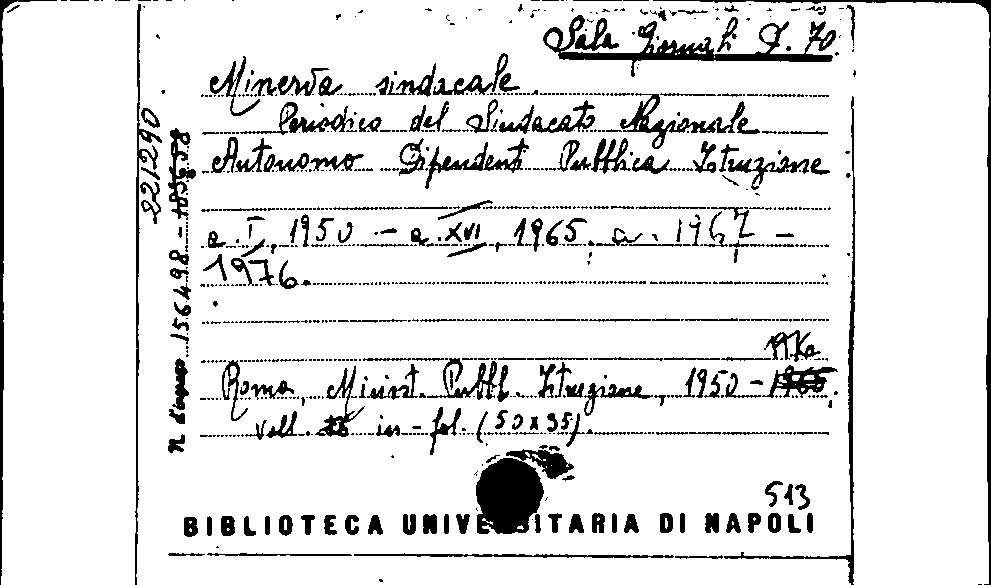 Sala Giornali D. 70
Minerva sindacale.
Periodico del Sindacato Nazionale
Autonomo Dipendenti Pubblica Istruzione
a. I, 1950 - a. XVI, 1965; a. 1967 -
1976.
Roma, Minist. Pubbl. Istruzione, 1950 -
voll. in-fol. (50x35).
513
BIBLIOTECA UNIVERSITARIA DI NAPOLI
N. d'ingresso 156498 -
221290